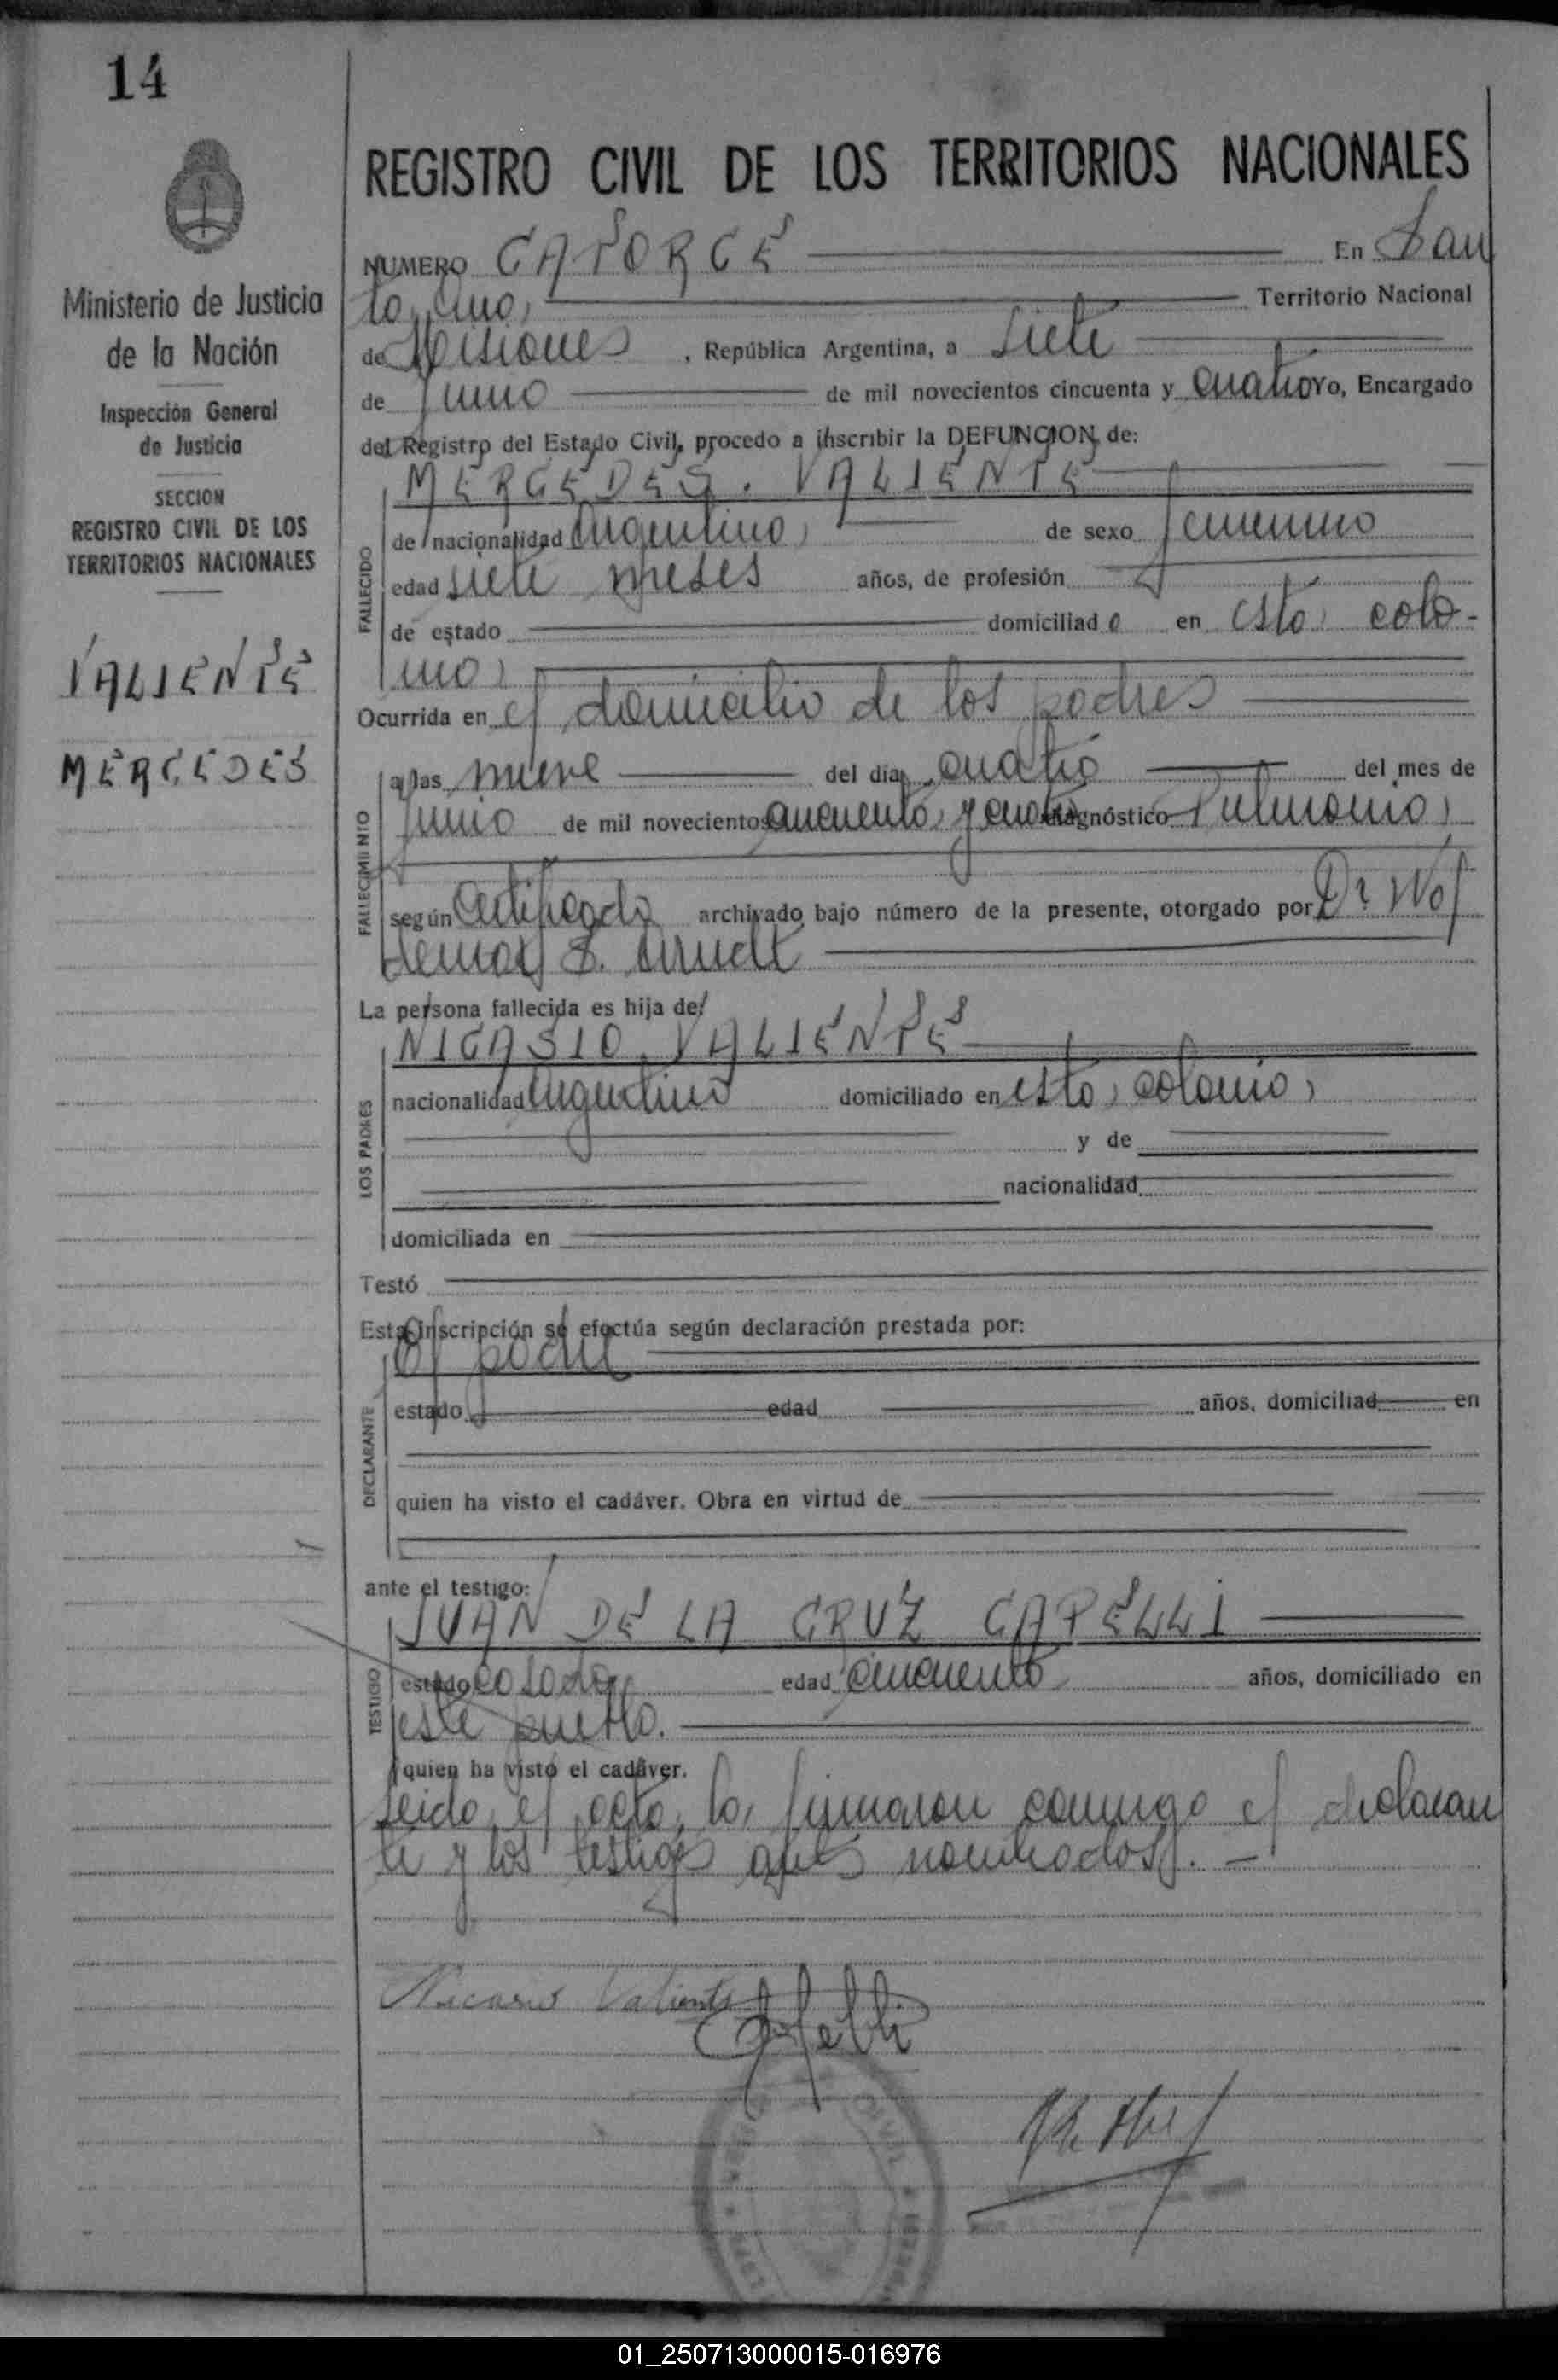 14
REGISTRO CIVIL DE LOS TERRITORIOS NACIONALES
Ministerio de Justicia
de la Nación
Inspección General
de Justicia
SECCION
REGISTRO CIVIL DE LOS
TERRITORIOS NACIONALES
VALIENTE
MERCEDES
NUMERO CATORCE En San
ta Ana, Territorio Nacional
de Misiones, República Argentina, a siete
de junio de mil novecientos cincuenta y cuatro Yo, Encargado
del Registro del Estado Civil, procedo a inscribir la DEFUNCION de:
MERCEDES VALIENTE
FALLECIDO
de nacionalidad Argentina de sexo femenino
edad siete meses años, de profesión
de estado domiciliado en esta colo-
nia
Ocurrida en el domicilio de los padres
FALLECIMIENTO
a las nueve del día cuatro del mes de
junio de mil novecientos cincuenta y cuatro diagnóstico
según certificado archivado bajo número de la presente, otorgado por Dr
La persona fallecida es hija de:
LOS PADRES
NICASIO VALIENTE
nacionalidad Argentino domiciliado en esta colonia
y de
nacionalidad
domiciliada en
Testó
Esta inscripción se efectúa según declaración prestada por:
DECLARANTE
el padre
estado edad años, domiciliad en
quien ha visto el cadáver. Obra en virtud de
ante el testigo:
TESTIGO
JUAN DE LA CRUZ CAPELLI
estado casado edad cincuenta años, domiciliado en
este pueblo.
quien ha visto el cadáver.
Leida el acta, la firmaron conmigo el declaran
te y los testigos antes nombrados. -
Valiente
01_250713000015-016976